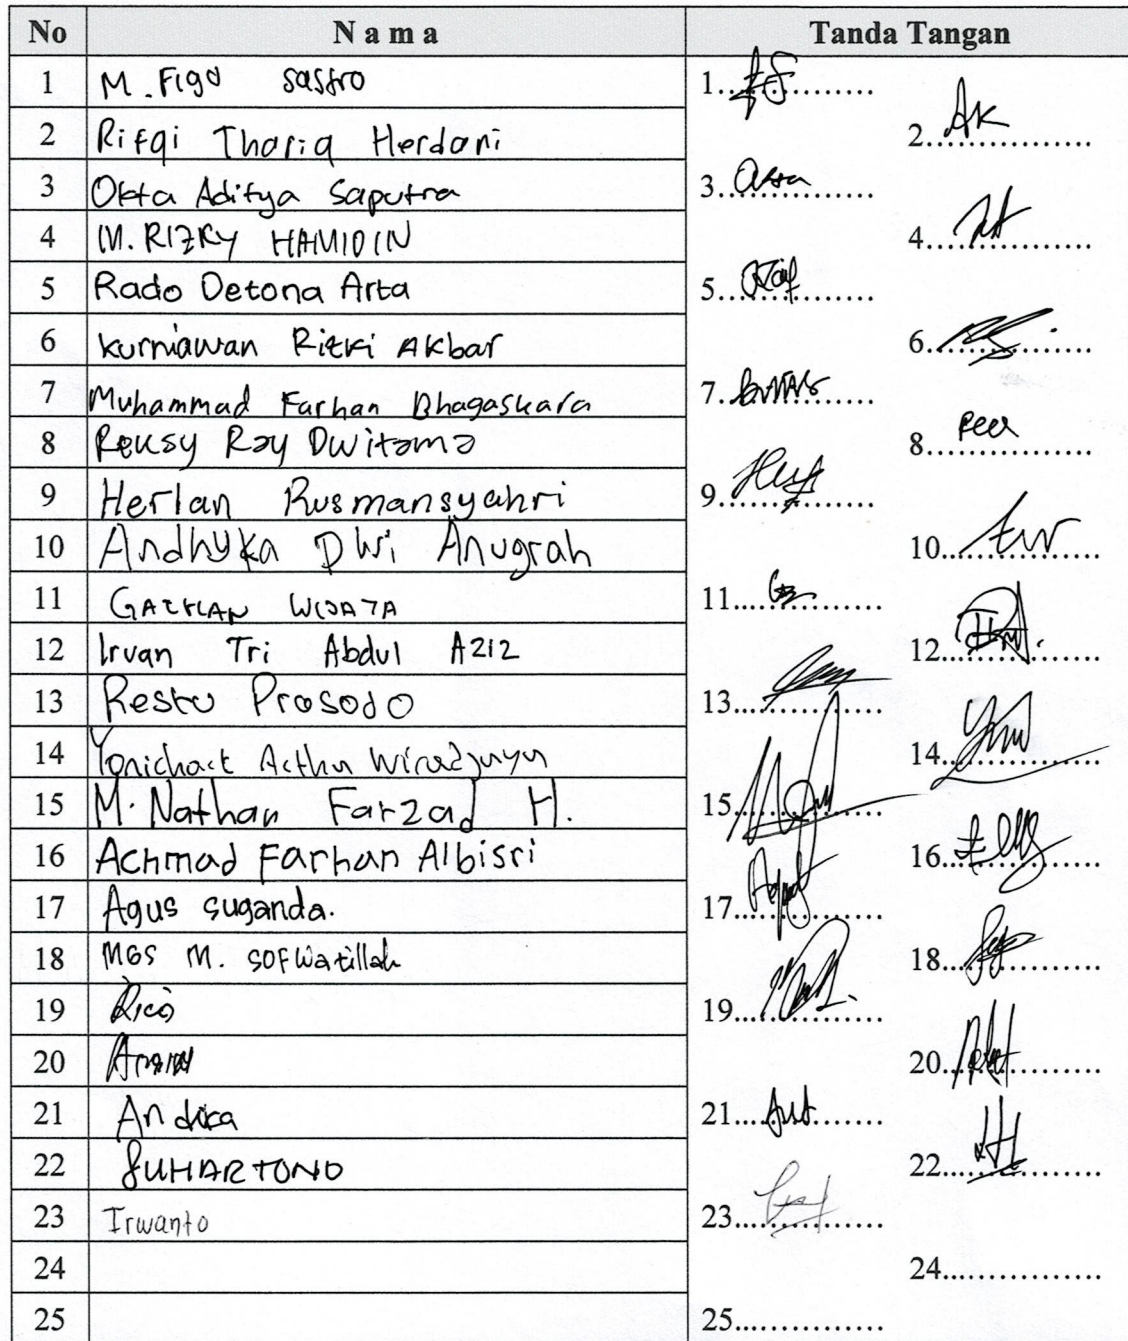 No Nama Tanda Tangan
1 M. Figo Sastro 1..............
2 Rifqi Thariq Herdani 2..............
3 Okta Aditya Saputra 3..............
4 M. RIZKY HAMIDIN 4..............
5 Rado Detona Arta 5..............
6 Kurniawan Rizki Akbar 6..............
7 Muhammad Farhan Bhagaskara 7..............
8 Reksy Ray Dwitama 8..............
9 Herlan Rusmansyahri 9..............
10 Andhyka Dwi Anugrah 10..............
11 GAZHLAN WIJAYA 11..............
12 Irvan Tri Abdul Aziz 12..............
13 Restu Prasojo 13..............
14 14..............
15 M. Nathan Farzad H. 15..............
16 Achmad Farhan Albisri 16..............
17 Agus suganda. 17..............
18 MGS M. SOFWatillah 18..............
19 Rico 19..............
20 20..............
21 Andika 21..............
22 SUHARTONO 22..............
23 Irwanto 23..............
24 24..............
25 25..............